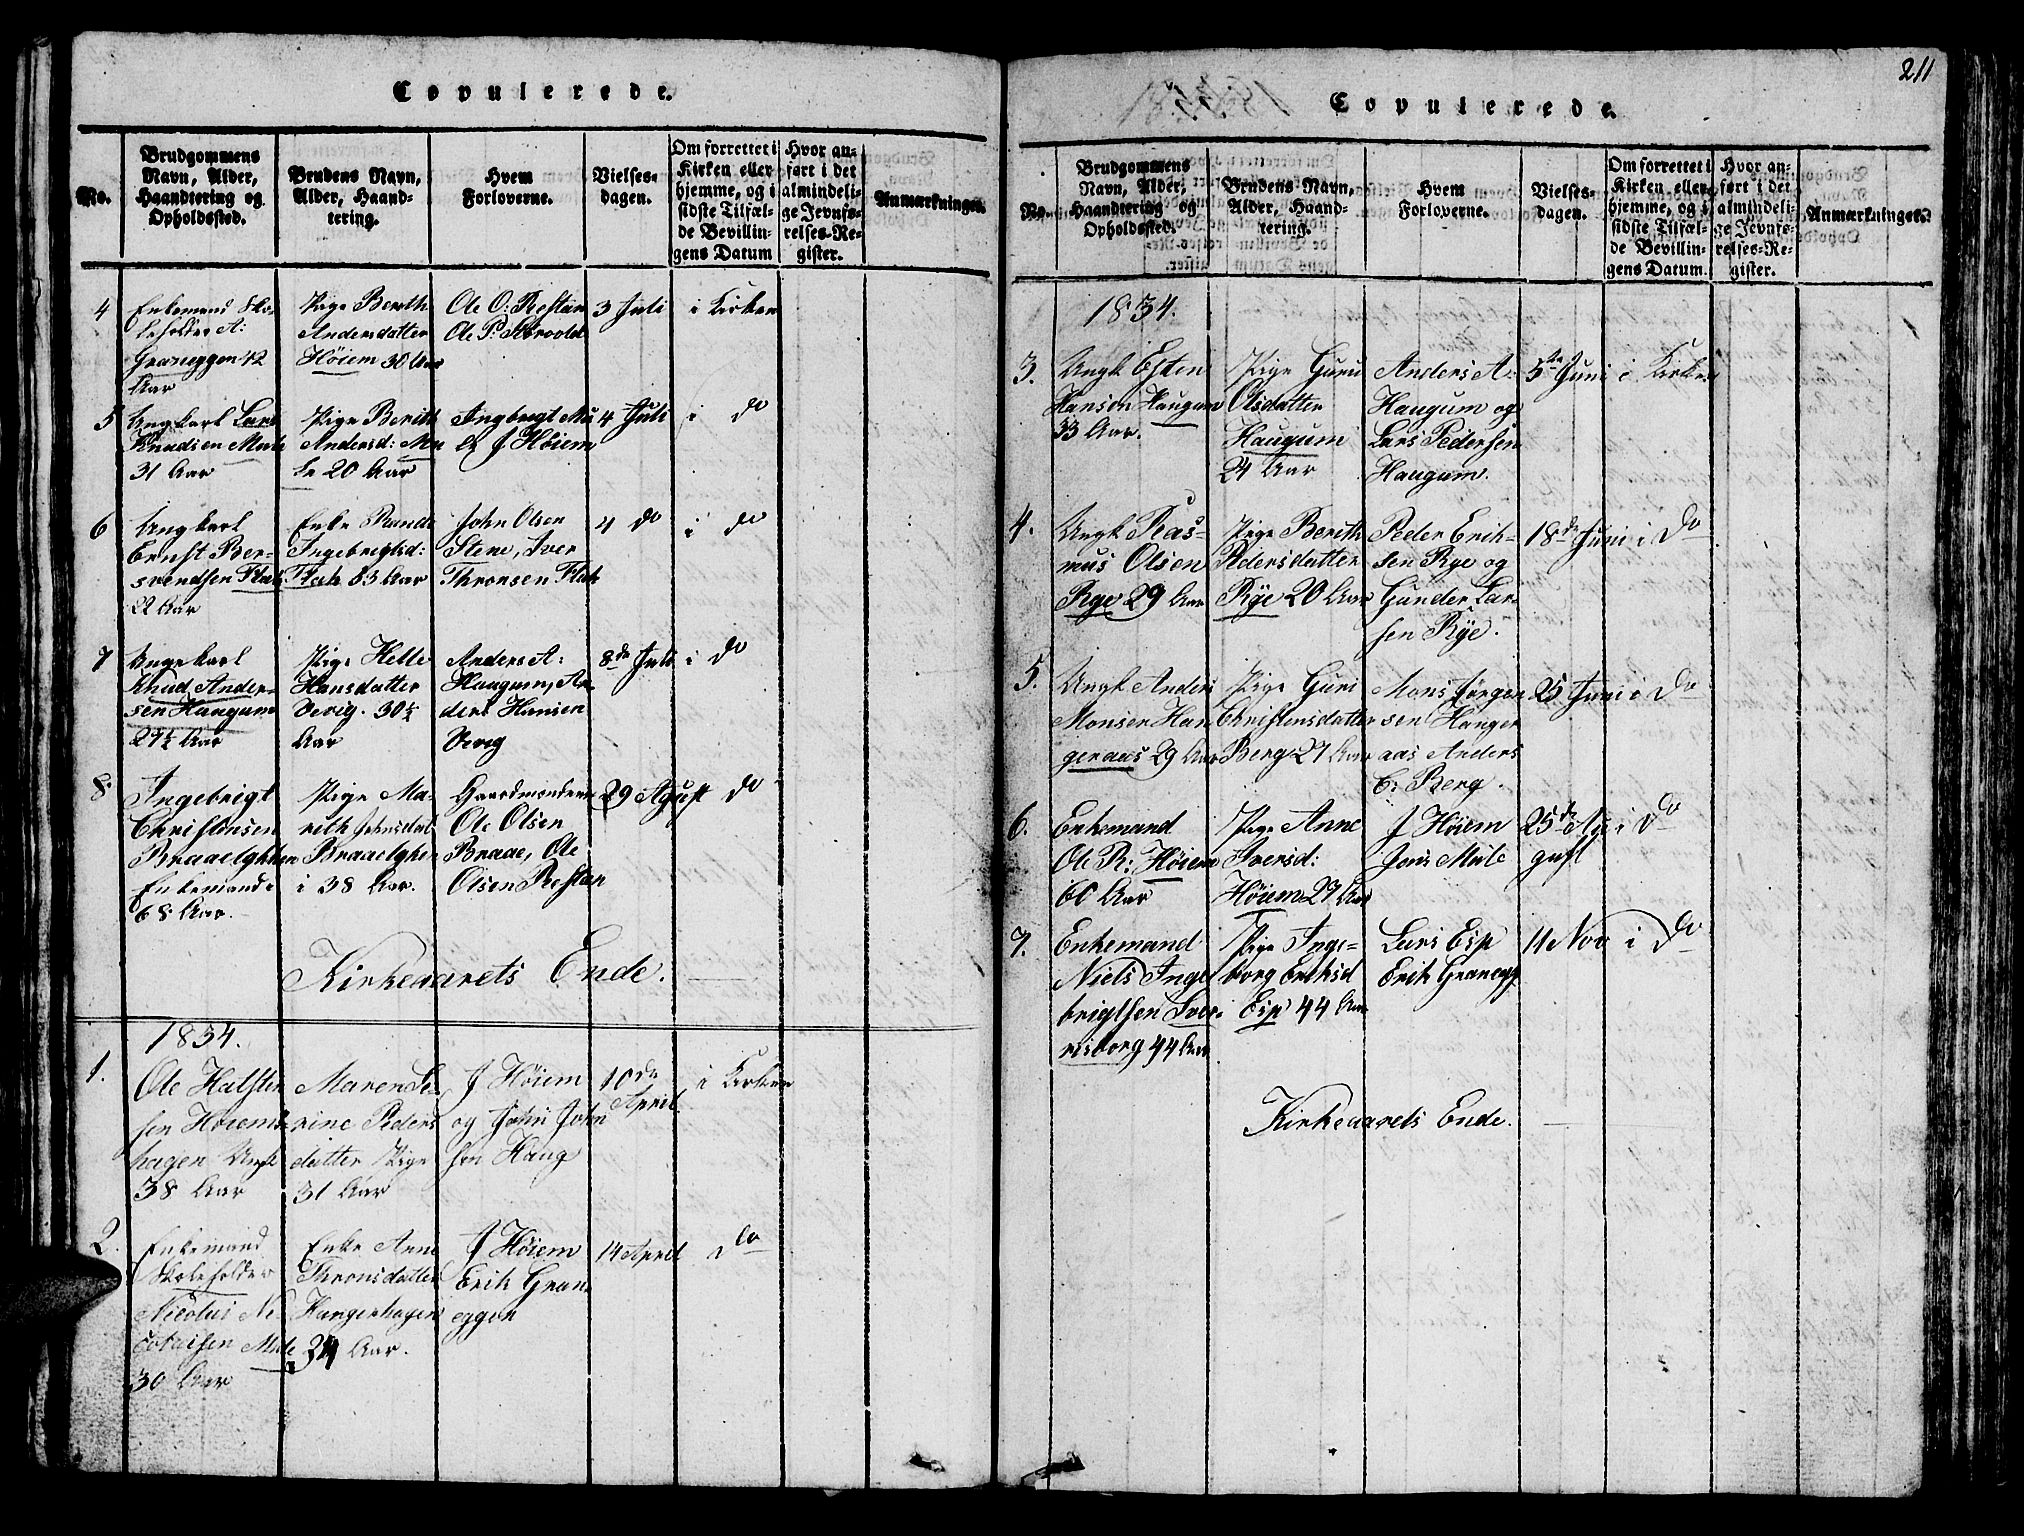 Copulerede.
No.
Brudgommens
Navn, Alder,
Haandtering og
Opholdssted.
Brudens Navn,
Alder, Haand-
tering.
Hvem
Forloverne.
Vielses-
dagen.
Om forrettet i
Kirken eller
hjemme, og i
sidste Tilfæl-
de Bevillin-
gens Datum
Hvor an-
ført i det
almindeli-
ge Jevnfø-
relses-Re-
gister.
Anmærkninger.
4
Enkemand Sko-
leholder A:
Graneggen 42
Aar
Pige Berith
Andersdatter
Høiem 30 Aar
Ole O: Restan
Ole P:
3 Juli
i Kirken
5
Ungkarl Lars
Knudsen Mule
31 Aar
Pige Berith
Andersd: Mu
le 20 Aar
Ingbrigt Mu
le J Høiem
4 Juli
i do
6
Ungkarl
Ernst Ber-
svendsen Flak
22 Aar
Enke Rande
Ingebrigtsd:
Flak 33 Aar
John Olsen
Stene, Iver
Thronsen Flak
4 do
i do
7
Ungekarl
Knud Ander-
sen Haugum
27½ Aar
Pige Helle
Hansdatter
Vevig. 30½
Aar
Anders A:
Haugum, An
ders Hansen
Vevig
8de Juli
i do
8
Ingebrigt
Christensen
Braaelghken
Enkemand
68 Aar.
Pige Ma-
rith Johnsdat
Braaelghen
i 38 Aar.
Gaardmændene
Ole Olsen
Braae, Ole
Olsen Restan
29 Agust
do
Kirkeaarets Ende.
1834.
1.
Ole Halsten
sen Høiems-
hagen Ungk
38 Aar
Maren Se-
rine Peders
datter Pige
31 Aar
J Høiem
og John John
sen Haug
10de
April
i Kirken
2.
Enkemand
Skoleholder
Nicolai Ni-
colaisen Mule
30 Aar
Enke Anne
Thronsdatter
Hangerhagen
34 Aar.
J Høiem
Erik Gran
eggen
14 April
do
211
Copulerede.
No.
Brudgommens
Navn, Alder,
Haandtering og
Opholdssted.
Brudens Navn,
Alder, Haand-
tering.
Hvem
Forloverne.
Vielses-
dagen.
Om forrettet i
Kirken eller
hjemme, og i
sidste Tilfæl-
de Bevillin-
gens Datum.
Hvor an-
ført i det
almindeli-
ge Jevnfø-
relses-Re-
gister.
Anmærkninger.
1834.
3.
Ungk Esten
Hansen Haugum
33 Aar.
Pige Guru
Olsdatter
Haugum
24 Aar
Anders A:
Haugum og
Lars Pedersen
Haugum.
5te Juni
i Kirken
4.
Ungk Ras-
mus Olsen
Rye 29 Aar
Pige Berith
Pedersdatter
Rye 20 Aar
Peder Erik-
sen Rye og
Gunder Lar-
sen Rye.
18de Juni
i do
5.
Ungk Anders
Monsen Han
geraas 29 Aar
Pige Guri
Christensdatter
Berg 27 Aar
Mons Jørgen
sen Hanger
aas Anders
C: Berg.
25 Juni
i do
6.
Enkemand
Ole R: Høiem
60 Aar
Pige Anne
Iversd:
Høiem 27 Aar
J Høiem
Jens Mule
25de Au
gust
i do
7.
Enkemand
Niels Inge
brigtsen Sver-
resborg 44 Aar
Pige Inge-
borg Eriksd
Esp 44 Aar
Lars Esp
Erik Granegg
11 Nov
i do
Kirkeaarets Ende.